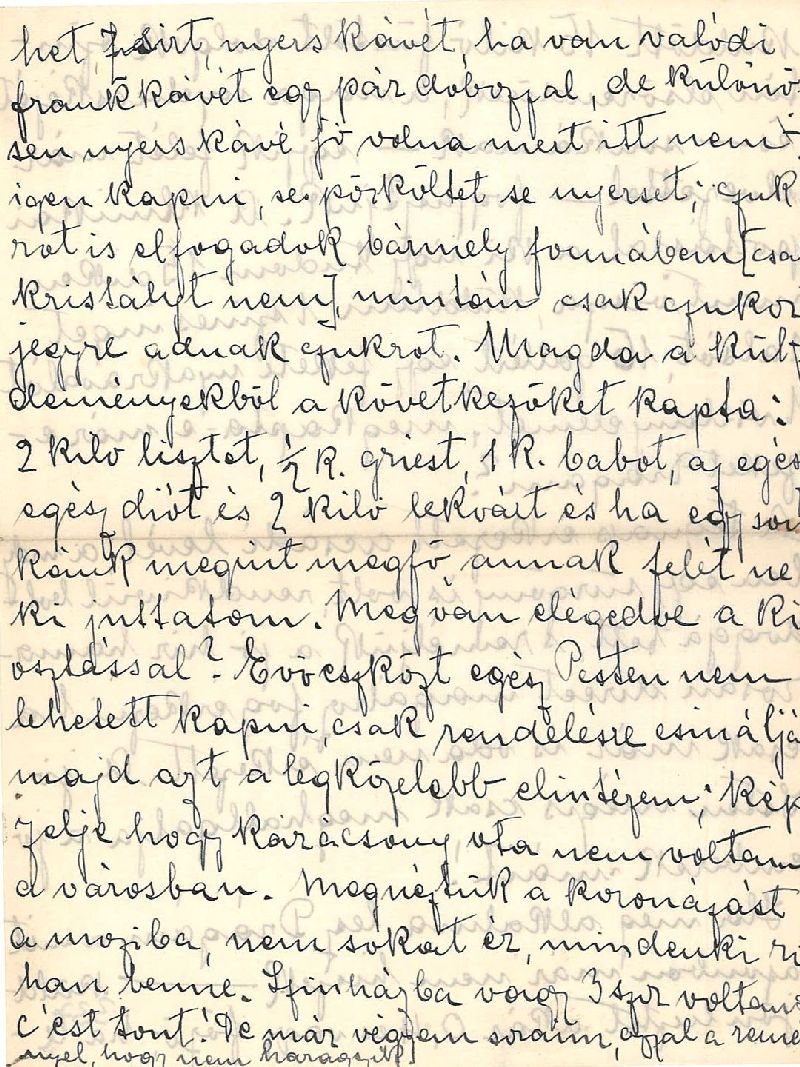 het, zsirt, nyers kávét, ha van valódi
frankkávét egy pár dobozzal, de különö-
sen nyers kávé jó volna mert itt nem
igen kapni, se pörköltet se nyerset; czuk
rot is elfogadok bármely formában [csa
kristályt nem], mintám csak czukor
jegyre adnak czukrot. Magda a kül
deményekből a következőket kapta:
2 kiló lisztet, ½ k. griest, 1 k. babot, az egés
egész diót és 2 kiló lekvárt és ha egy son
kánk megint megfő annak felét ne
ki juttatom. Meg van elégedve a ki
osztással? Evőeszközt egész Pesten nem
lehetett kapni, csak rendelésre csináljá
majd azt a legközelebb elintézem; kép
zelje hogy karácsony óta nem voltam
a városban. Megnéztük a koronázást
a moziba, nem sokat ér, mindenki ro
han benne. Szinházba vagy 3szor voltam
c'est tout! De már végzem soraim, azzal a remé
nyel, hogy nem haragszik]